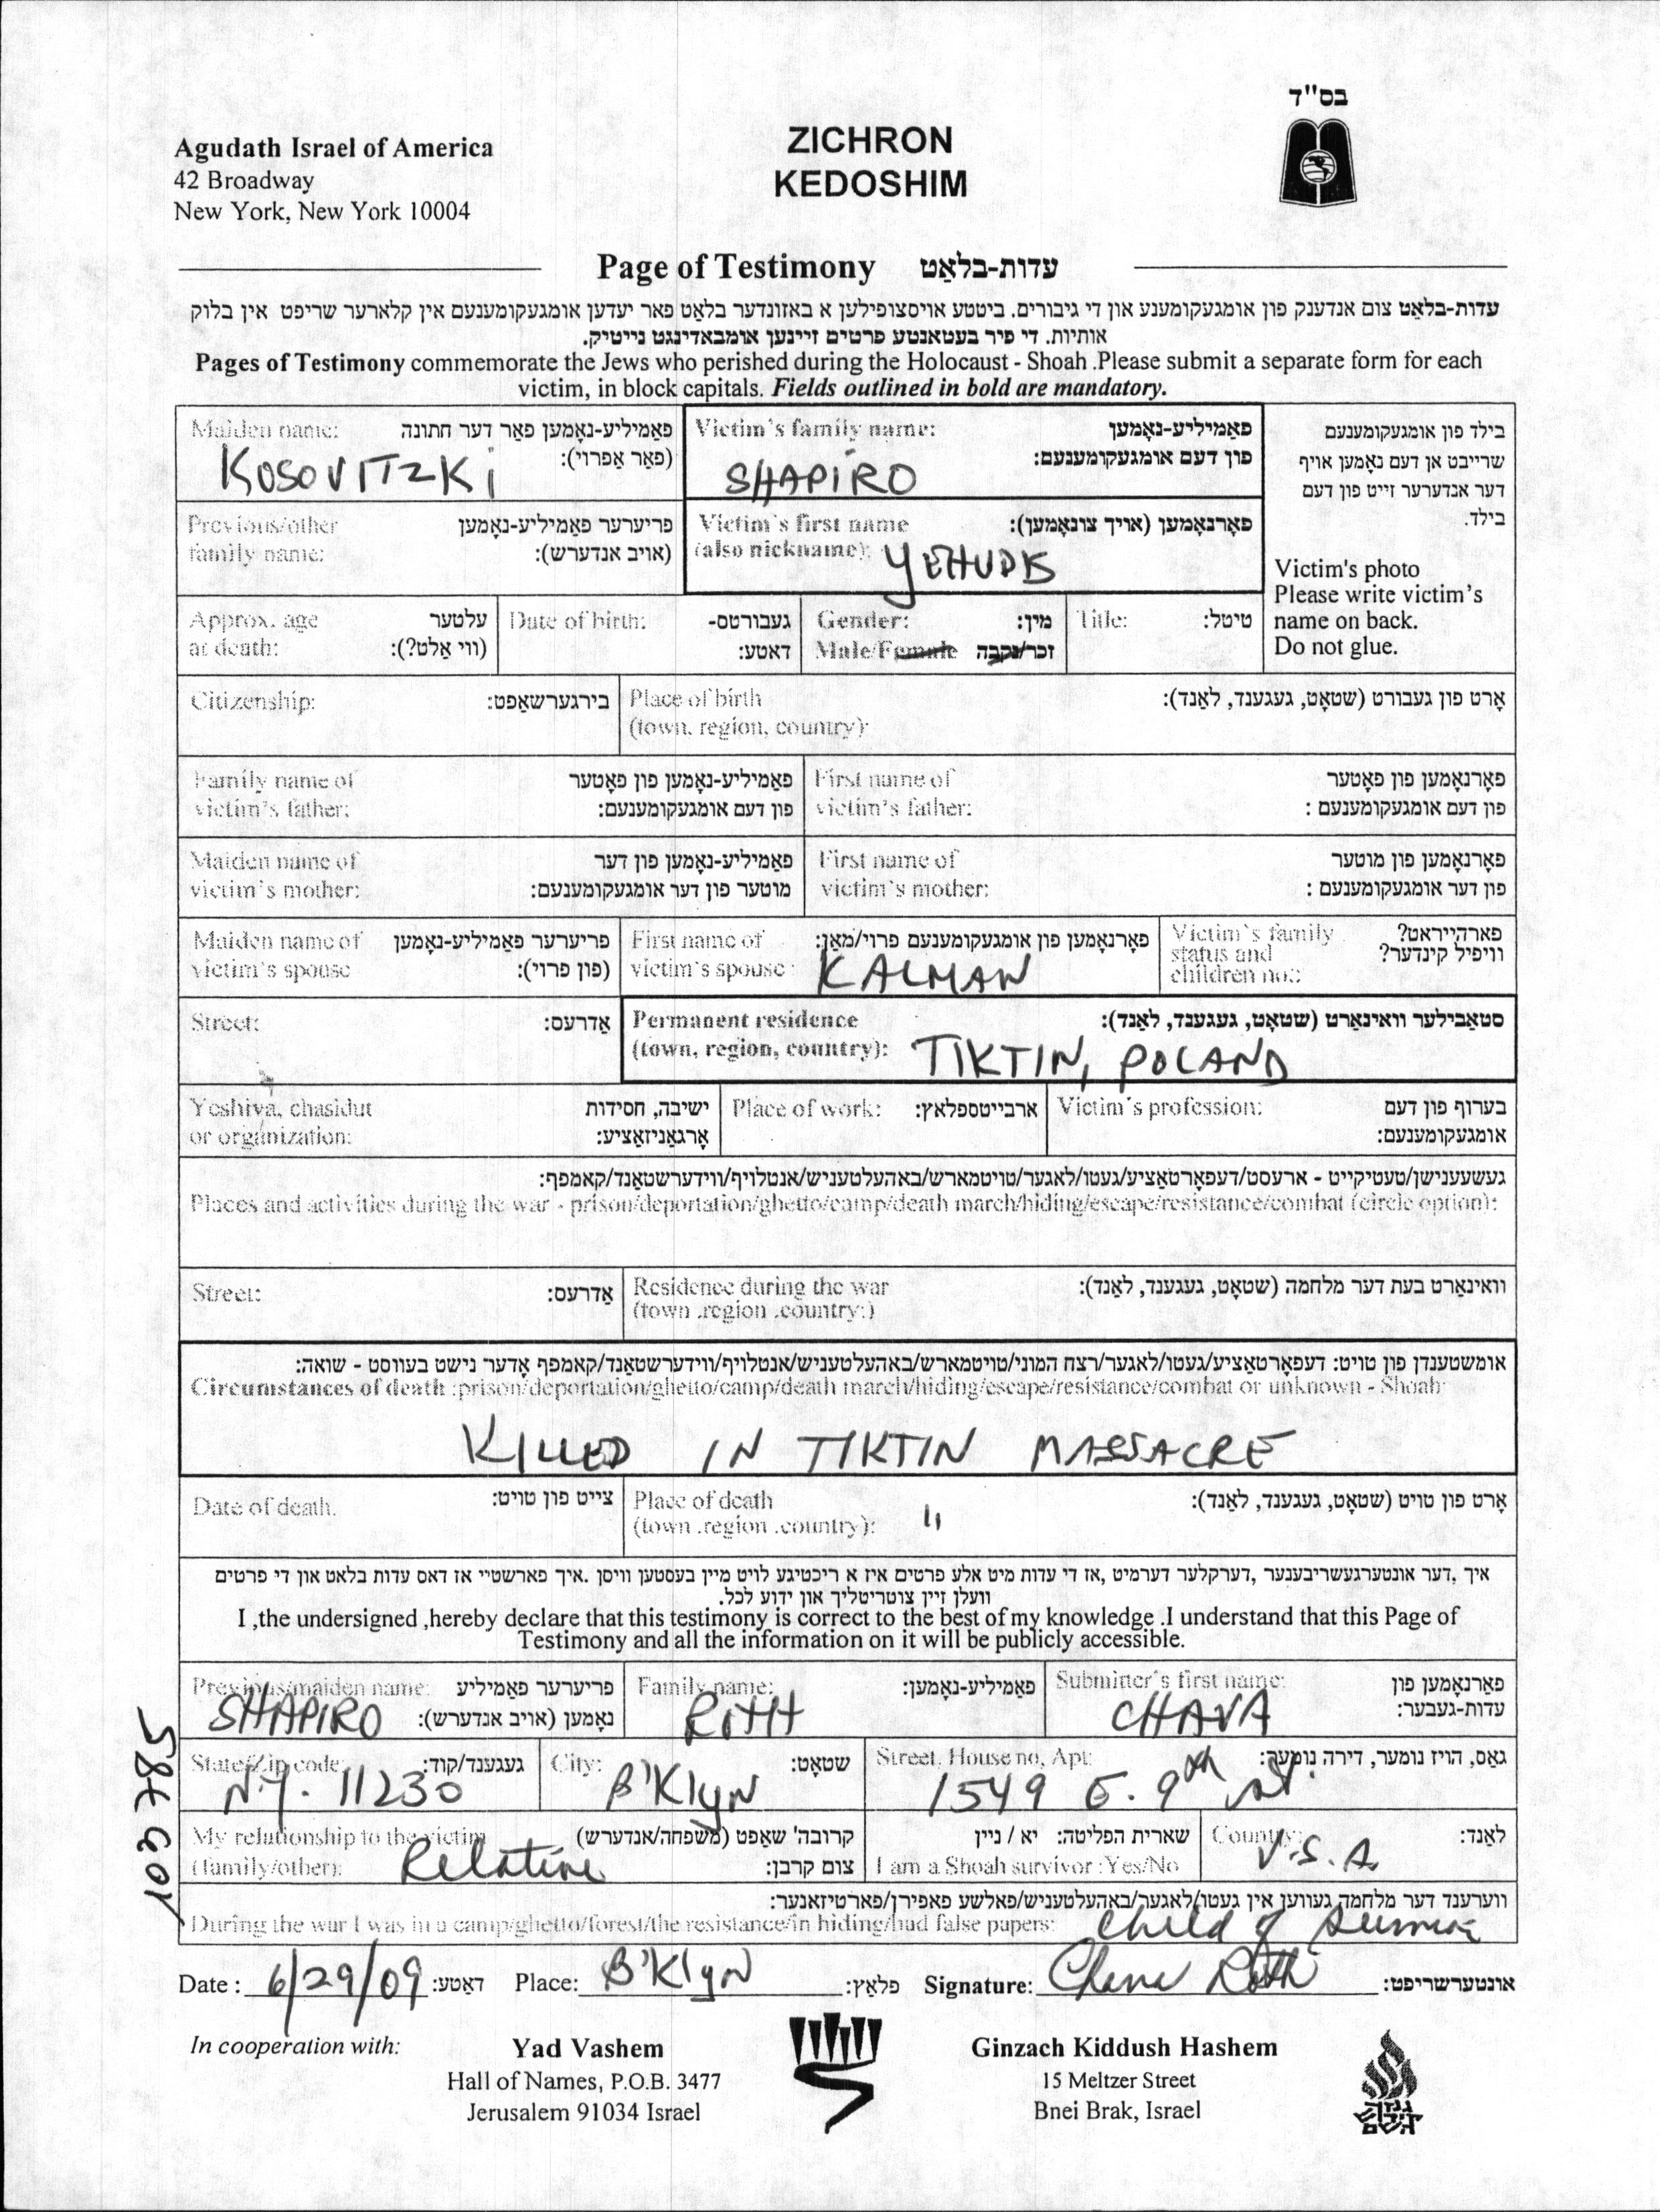 בס"ד
Agudath Israel of America
42 Broadway
New York, New York 10004
ZICHRON
KEDOSHIM
Page of Testimony עדות-בלאַט
עדות-בלאַט צום אנדענק פון אומגעקומענע און די גיבורים. ביטטע אויסצופילען א באזונדער בלאַט פאר יעדען אומגעקומענעם אין קלארער שריפט אין בלוק
אותיות. די פיר בעטאנטע פרטים זיינען אומבאדינגט נייטיק.
Pages of Testimony commemorate the Jews who perished during the Holocaust - Shoah .Please submit a separate form for each
victim, in block capitals. Fields outlined in bold are mandatory.
Maiden name: פאַמיליע-נאָמען פאר דער חתונה
(פאַר אַפרוי):
KOSOVITZKI
Victim's family name: פאַמיליע-נאָמען
פון דעם אומגעקומענעם:
SHAPIRO
בילד פון אומגעקומענעם
שרייבט אן דעם נאָמען אויף
דער אנדערער זייט פון דעם
בילד.
Victim's photo
Please write victim's
name on back.
Do not glue.
Previous/other פריערער פאַמיליע-נאָמען
family name: (אויב אנדערש):
Victim's first name פאָרנאָמען (אויך צונאָמען):
(also nickname): YEHUDIS
Approx. age עלטער
at death: (ווי אַלט?):
Date of birth: געבורטס-
דאטע:
Gender: מין:
Male/Female זכר/נקבה
Title: טיטל:
Citizenship: בירגערשאַפט:
Place of birth אָרט פון געבורט (שטאָט, געגענד, לאַנד):
(town, region, country):
Family name of פאַמיליע-נאָמען פון פאָטער
victim's father: פון דעם אומגעקומענעם:
First name of פאָרנאָמען פון פאָטער
victim's father: פון דעם אומגעקומענעם :
Maiden name of פאַמיליע-נאָמען פון דער
victim's mother: מוטער פון דער אומגעקומענעם:
First name of פאָרנאָמען פון מוטער
victim's mother: פון דער אומגעקומענעם :
Maiden name of פריערער פאַמיליע-נאָמען
victim's spouse (פון פרוי):
First name of פאָרנאָמען פון אומגעקומענעם פרוי/מאַן:
victim's spouse : KALMAN
Victim's family פארהייראט?
status and וויפיל קינדער?
children no.:
Street: אַדרעס:
Permanent residence סטאַבילער וואינאַרט (שטאָט, געגענד, לאַנד):
(town, region, country): TIKTIN, POLAND
Yeshiva, chasidut ישיבה, חסידות
or organization: אָרגאַניזאַציע:
Place of work: ארבייטספלאַץ:
Victim's profession: בערוף פון דעם
אומגעקומענעם:
געשעענישן/טעטיקייט - ארעסט/דעפּאָרטאַציע/געטו/לאגער/טויטמארש/באהעלטעניש/אנטלויף/ווידערשטאַנד/קאמפף:
Places and activities during the war - prison/deportation/ghetto/camp/death march/hiding/escape/resistance/combat (circle option):
Street: אַדרעס:
Residence during the war וואינאַרט בעת דער מלחמה (שטאָט, געגענד, לאַנד):
(town .region .country:)
אומשטענדן פון טויט: דעפּאָרטאַציע/געטו/לאגער/רצח המוני/טויטמארש/באהעלטעניש/אנטלויף/ווידערשטאַנד/קאמפף אָדער נישט בעווסט - שואה:
Circumstances of death :prison/deportation/ghetto/camp/death march/hiding/escape/resistance/combat or unknown - Shoah:
KILLED IN TIKTIN MASSACRE
Date of death. צייט פון טויט:
Place of death אָרט פון טויט (שטאָט, געגענד, לאַנד):
(town .region .country): "
איך ,דער אונטערגעשריבענער ,דערקלער דערמיט ,אז די עדות מיט אלע פרטים איז א ריכטיגע לויט מיין בעסטען וויסן .איך פארשטיי אז דאס עדות בלאט און די פרטים
וועלן זיין צוטריטליך און ידוע לכל.
I ,the undersigned ,hereby declare that this testimony is correct to the best of my knowledge .I understand that this Page of
Testimony and all the information on it will be publicly accessible.
Previous/maiden name: פריערער פאַמיליע
SHAPIRO נאָמען (אויב אנדערש):
Family name: פאַמיליע-נאָמען:
ROTH
Submitter's first name: פאָרנאָמען פון
עדות-געבער:
CHAVA
State/Zip code: געגענד/קוד:
N.Y. 11230
City: שטאָט:
B'Klyn
Street, House no, Apt: גאַס, הויז נומער, דירה נומער:
1549 E. 9th St.
My relationship to the victim קרובה' שאַפט (משפחה/אנדערש)
(family/other): צום קרבן:
Relative
שארית הפליטה: יא / ניין
I am a Shoah survivor :Yes/No
Country: לאַנד:
U.S.A.
ווערענד דער מלחמה געווען אין געטו/לאגער/באהעלטעניש/פאלשע פאפירן/פארטיזאנער:
During the war I was in a camp/ghetto/forest/the resistance/in hiding/had false papers: child of
Date : 6/29/09 דאַטע: Place: B'Klyn פלאַץ: Signature: Chava Roth אונטערשריפט:
103785
In cooperation with:
Yad Vashem
Hall of Names, P.O.B. 3477
Jerusalem 91034 Israel
Ginzach Kiddush Hashem
15 Meltzer Street
Bnei Brak, Israel
גנזך
קידוש
השם